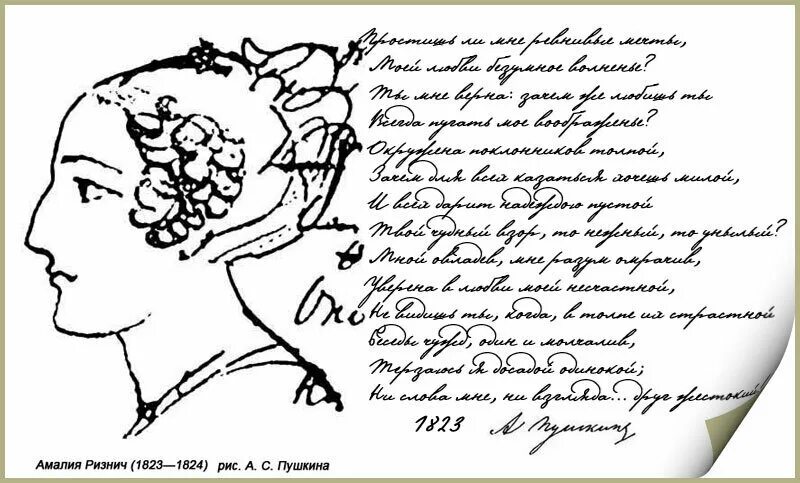 Простишь ли мне ревнивые мечты,
Моей любви безумное волненье?
Ты мне верна: зачем же любишь ты
Всегда пугать мое воображенье?
Окружена поклонников толпой,
Зачем для всех казаться хочешь милой,
И всех дарит надеждою пустой
Твой чудный взор, то нежный, то унылый?
Мной овладев, мне разум омрачив,
Уверена в любви моей несчастной,
Не видишь ты, когда, в толпе их страстной
Беседы чужд, один и молчалив,
Терзаюсь я досадой одинокой;
Ни слова мне, ни взгляда... друг жестокий!
1823 А Пушкин
Амалия Ризнич (1823—1824) рис. А. С. Пушкина